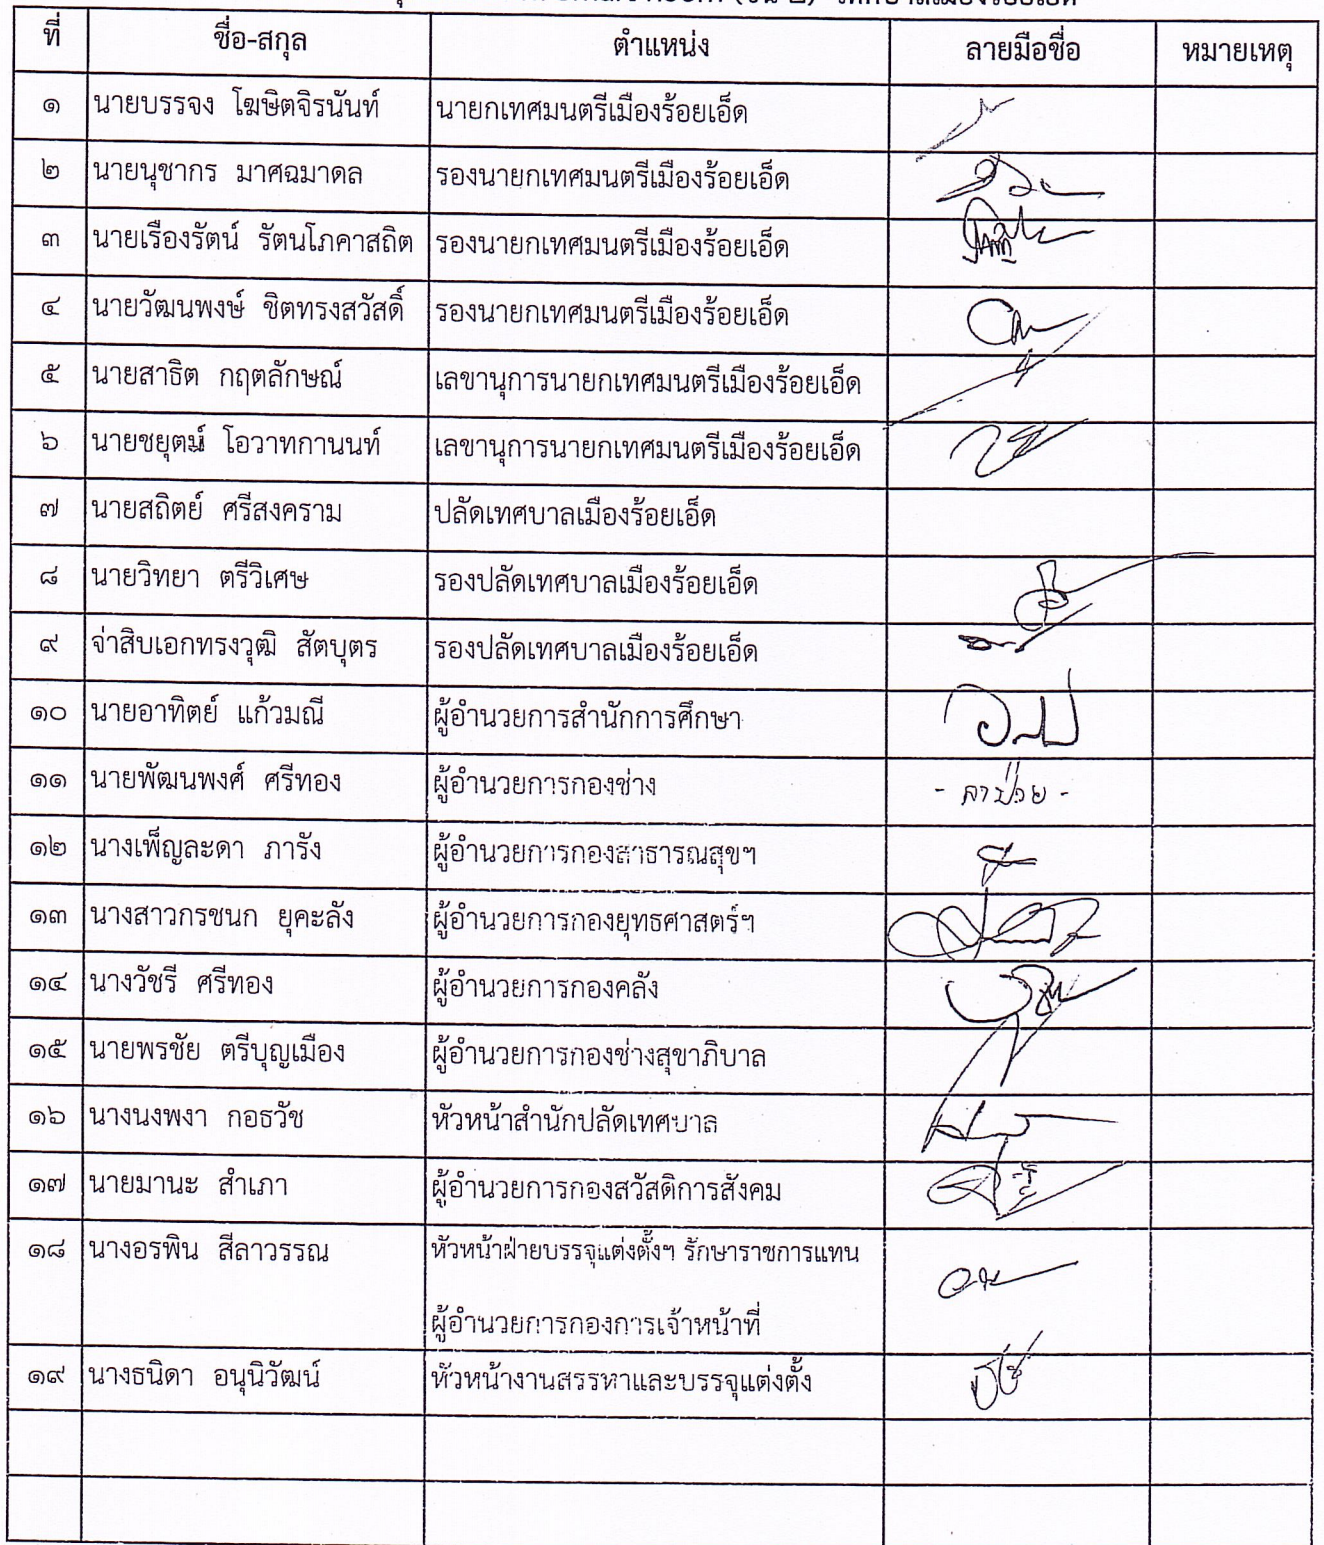 ที่ ชื่อ-สกุล ตำแหน่ง ลายมือชื่อ หมายเหตุ
๑ นายบรรจง โฆษิตจิรนันท์ นายกเทศมนตรีเมืองร้อยเอ็ด
๒ นายนุชากร มาศฉมาดล รองนายกเทศมนตรีเมืองร้อยเอ็ด
๓ นายเรืองรัตน์ รัตนโภคาสถิต รองนายกเทศมนตรีเมืองร้อยเอ็ด
๔ นายวัฒนพงษ์ ชิตทรงสวัสดิ์ รองนายกเทศมนตรีเมืองร้อยเอ็ด
๕ นายสาธิต กฤตลักษณ์ เลขานุการนายกเทศมนตรีเมืองร้อยเอ็ด
๖ นายชยุตม์ โอวาทกานนท์ เลขานุการนายกเทศมนตรีเมืองร้อยเอ็ด
๗ นายสถิตย์ ศรีสงคราม ปลัดเทศบาลเมืองร้อยเอ็ด
๘ นายวิทยา ตรีวิเศษ รองปลัดเทศบาลเมืองร้อยเอ็ด
๙ จ่าสิบเอกทรงวุฒิ สัตบุตร รองปลัดเทศบาลเมืองร้อยเอ็ด
๑๐ นายอาทิตย์ แก้วมณี ผู้อำนวยการสำนักการศึกษา
๑๑ นายพัฒนพงศ์ ศรีทอง ผู้อำนวยการกองช่าง - ลาป่วย -
๑๒ นางเพ็ญละดา ภารัง ผู้อำนวยการกองสาธารณสุขฯ
๑๓ นางสาวกรชนก ยุคะลัง ผู้อำนวยการกองยุทธศาสตร์ฯ
๑๔ นางวัชรี ศรีทอง ผู้อำนวยการกองคลัง
๑๕ นายพรชัย ตรีบุญเมือง ผู้อำนวยการกองช่างสุขาภิบาล
๑๖ นางนงพงา กอธวัช หัวหน้าสำนักปลัดเทศบาล
๑๗ นายมานะ สำเภา ผู้อำนวยการกองสวัสดิการสังคม
๑๘ นางอรพิน สีลาวรรณ หัวหน้าฝ่ายบรรจุแต่งตั้งฯ รักษาราชการแทน
ผู้อำนวยการกองการเจ้าหน้าที่
๑๙ นางธนิดา อนุนิวัฒน์ หัวหน้างานสรรหาและบรรจุแต่งตั้ง